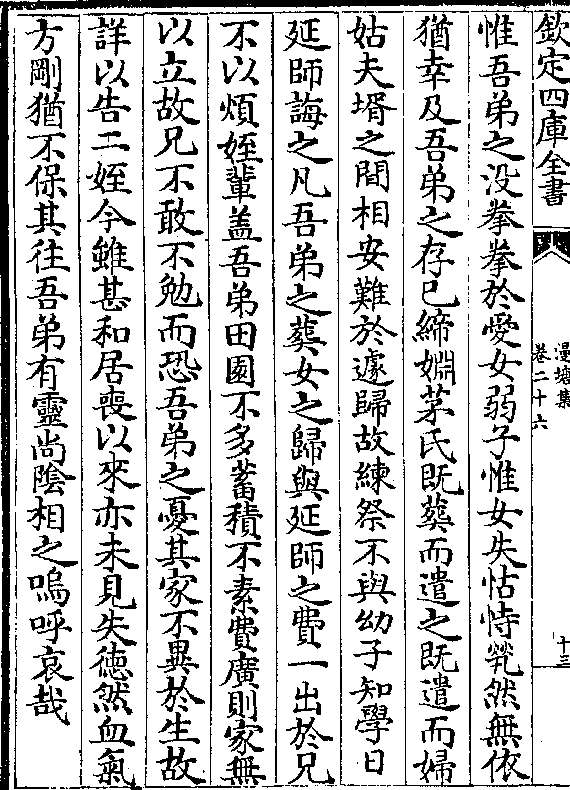 欽定四庫全書
漫塘集
卷二十六
十三
惟吾弟之没拳拳於愛女弱子惟女失怙恃煢然無依
猶幸及吾弟之存已締婣茅氏既葬而遣之既遣而婦
姑夫壻之間相安難於遽歸故練祭不與幼子知學日
延師誨之凡吾弟之葬女之歸與延師之費一出於兄
不以煩姪輩盖吾弟田園不多蓄積不素費廣則家無
以立故兄不敢不勉而恐吾弟之憂其家不異於生故
詳以告二姪今雖甚和居喪以來亦未見失徳然血氣
方剛猶不保其往吾弟有靈尚陰相之嗚呼哀哉